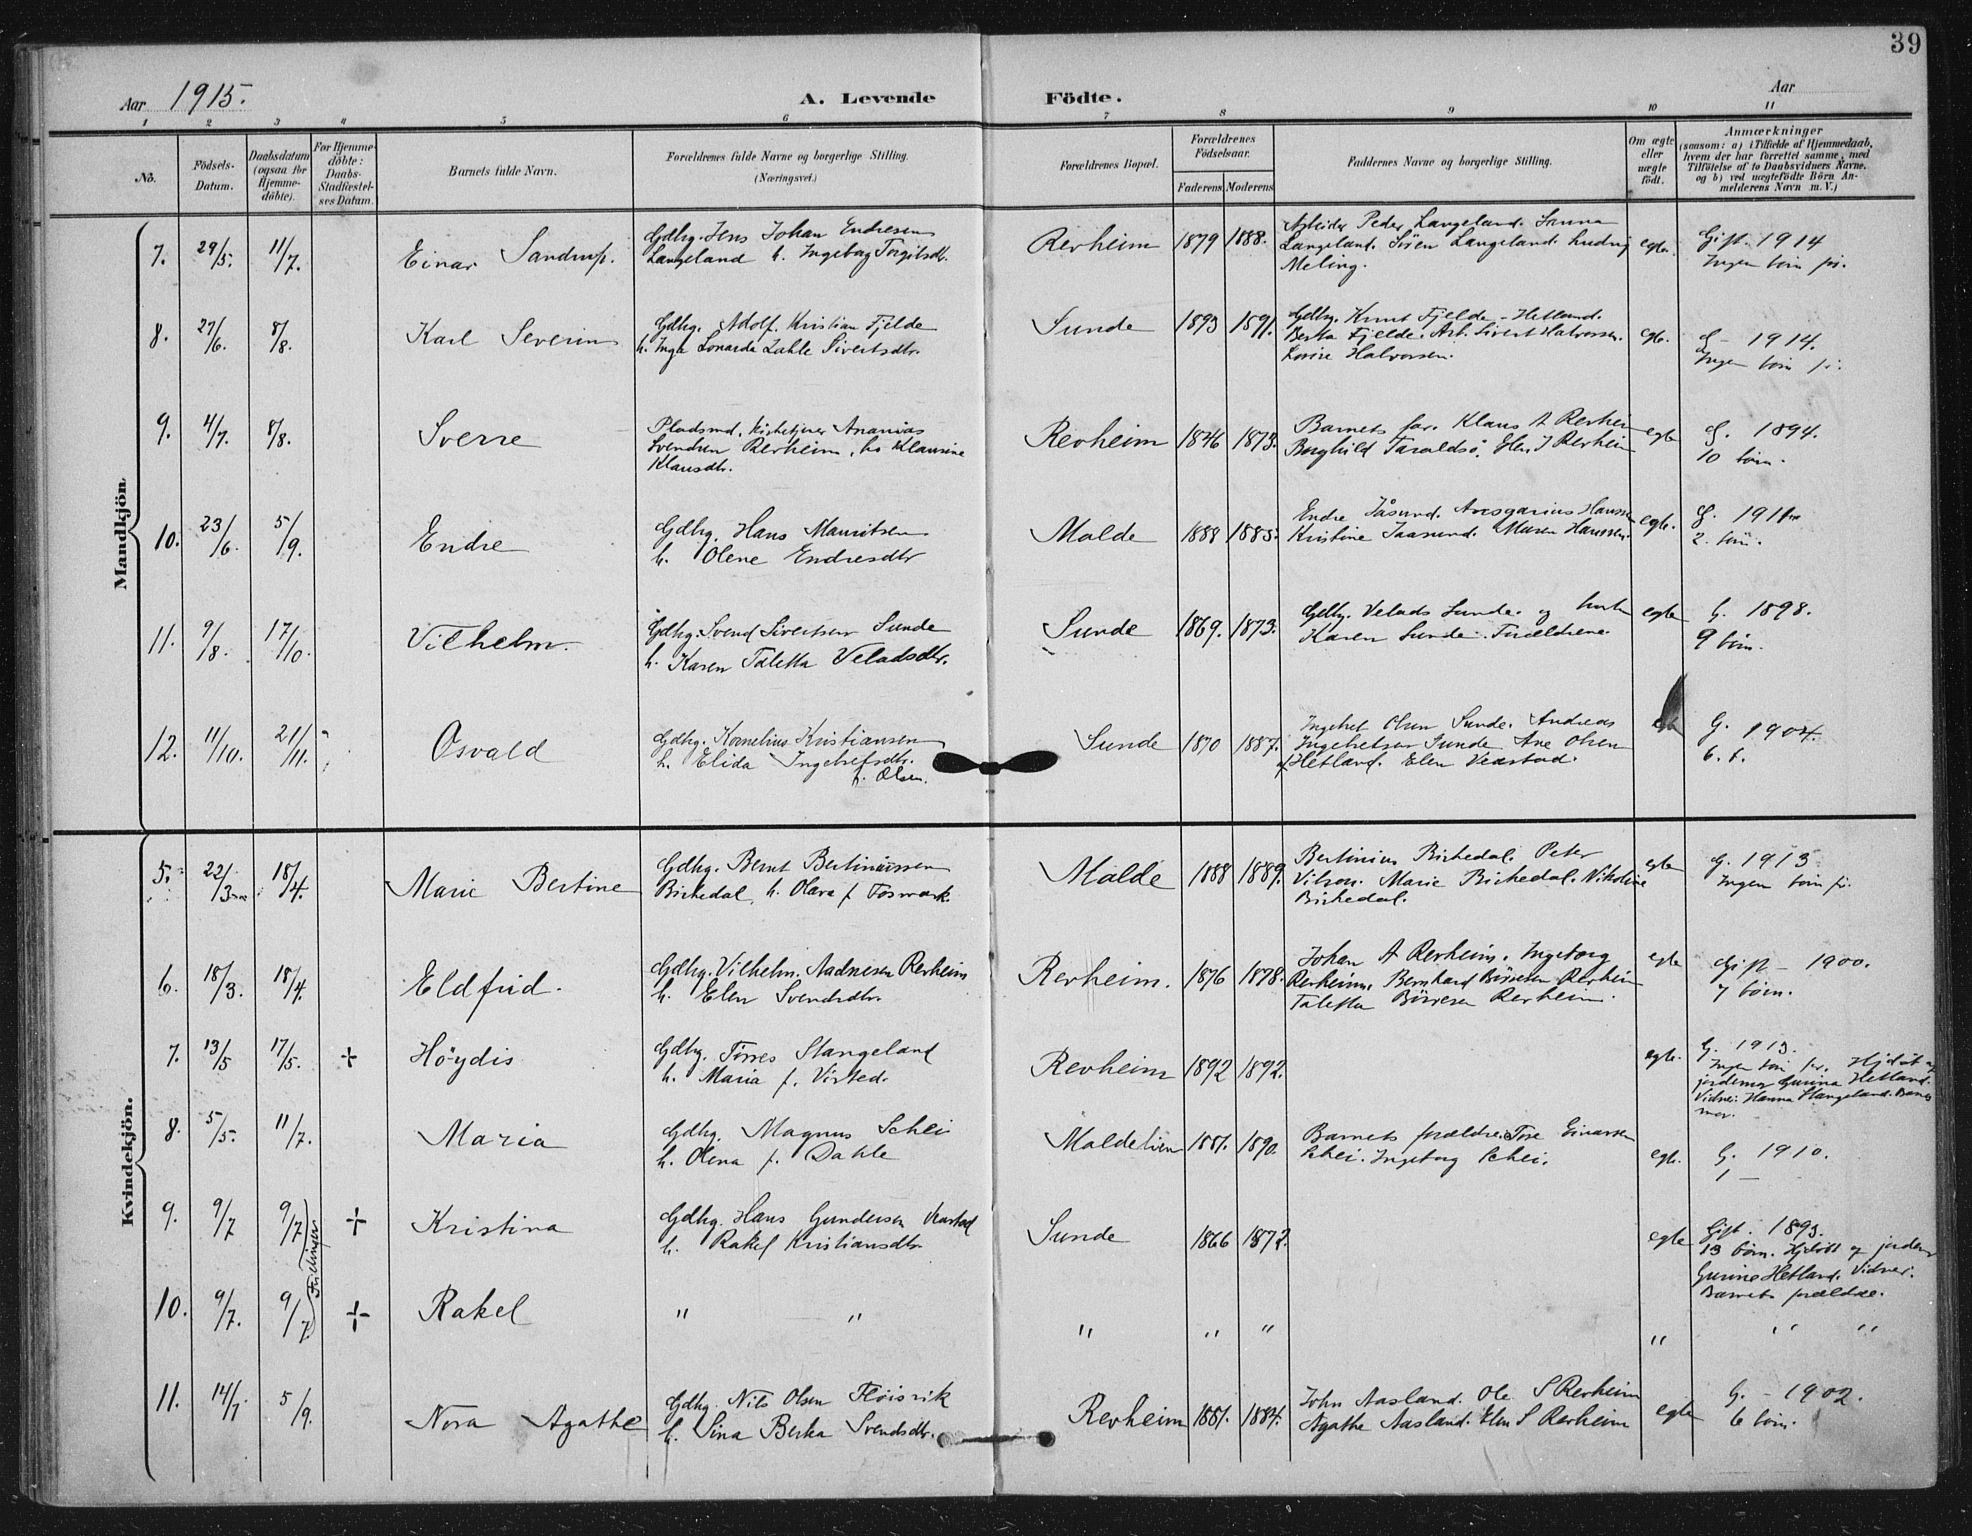 39
Aar 1915.
A. Levende Födte.
Aar
1 2 3 4 5 6 7 8 9 10 11
No.
Födsels-Datum.
Daabsdatum (ogsaa for Hjemme-döbte).
For Hjemme-döbte: Daabs-Stadfæstel-ses Datum.
Barnets fulde Navn.
Forældrenes fulde Navne og borgerlige Stilling. (Næringsvei.)
Forældrenes Bopæl.
Forældrenes Födselsaar.
Faderens Moderens
Faddernes Navne og borgerlige Stilling.
Om ægte eller uægte födt.
Anmærkninger
(saasom: a) i Tilfælde af Hjemmedaab,
hvem der har forrettet samme, med
Tilföielse af to Daabsvidners Navne.
og b) ved uægtefödte Börn An-
melderens Navn m.V.)
Mandkjön.
7. 29/5. 11/7. Einar Sandrup.
Gdbg. Jens Johan Endresen
Langeland h. Ingeborg Torgilsdtr.
Revheim 1879 1888.
Arbeider Peder Langeland.
Langeland. Sören Langeland. Ludvig
Meling.
egte.
Gift. 1914
Ingen börn för.
8. 27/6. 8/8. Karl Severin
Gdbg. Adolf Kristian Fjelde
h. Inga Lonarda Zahle Sivertsdtr.
Sunde 1893 1891.
Gdbg. Knut Fjelde - Hetland.
Berta Fjelde. Arb. Sivert Halvorsen.
Lovise Halvorsen.
egte.
G - 1914.
Ingen börn för.
9. 4/7. 8/8. Sverre
Pladsmd. kirketjener Ananias
Svendsen Revheim, h. Klaurine
Klausdtr.
Revheim 1846 1873.
Barnets far. Klaus A Revheim
Borghild Taraldsö. Elen J Revheim
egte
G. 1894.
10 börn.
10. 23/6. 5/9. Endre
Gdbg. Hans Mauritsen
h. Olene Endresdtr
Malde 1888 1885.
Endre Jåsund. Ansgarius Hanssen
Kristine Jaasund. Maren Hanssen.
egte.
2. börn.
11. 9/8. 17/10. Vilhelm.
Gdbg. Svend Sivertsen Sunde
h. Karen Taletta Veladsdtr.
Sunde 1869. 1873.
Gdbg. Velads Sunde. og hustru
Karen Sunde. Forældrene.
egte
G. 1898.
9 börn.
12. 11/10. 21/11. Osvald
Gdbg. Kornelius Kristiansen
h. Elida Ingebretsdtr.
f. Olsen.
Sunde 1870 1887.
Ingebret Olsen Sunde. Andreas
Ingebretsen Sunde Ane Olsen
Hetland. Elen Vearstad.
G. 1904.
6. b.
Kvindekjön.
5. 22/3 18/4. Marie Bertine
Gdbg. Bernt Bertiniussen
Birkedal, h. Olava f. Fosmark.
Malde 1888 1889.
Bertinius Birkedal. Peter
Vilson. Marie Birkedal. Nikoline
Birkedal.
egte
G. 1913
Ingen börn för.
6. 18/3. 18/4. Eldfrid.
Gdbg. Vilhelm. Aadnesen Revheim
h. Elen Svendsdtr.
Revheim. 1876 1878.
Johan A Revheim. Ingeborg
Revheim. Bernhard Börresen Revheim
Taletta Börresen Revheim.
egte
Gift - 1900.
7 börn.
7. 13/5 17/5. + Höydis
Gdbg. Törres Stangeland
h. Maria f. Visted.
Revheim 1892 1892.
egte.
G. 1913.
Ingen börn för. Hjdöbt af
jordemor Gurina Hetland.
Vidner: Hanna Stangeland. Barnets
mor.
8. 5/5. 11/7. Maria
Gdbg. Magnus Schei
h. Olena f. Dahle
Maldelien 1887. 1890.
Barnets forældre. Tore Einarsen
Schei. Ingeborg Schei.
egte.
G. 1910.
1 —
9. 9/7 9/7 + Kristina
Tvillinger
Gdbg. Hans Gundersen Vearstad
h. Rakel Kristiansdtr.
Sunde 1866 1872.
egte
Gift. 1893.
13 börn. Hjdöbt af jordem
Gurine Hetland. Vidner.
Barnets forældre.
10. 9/7. 9/7 + Rakel
" " " " " " " "
11. 14/7. 5/9. Nora Agathe
Gdbg. Nils Olsen Flöisvik
h. Sina Berta Svendsdtr.
Revheim 1881. 1884.
John Aasland. Ole S Revheim
Agathe Aasland. Elen S Revheim
egte
G. - 1902.
6 börn.